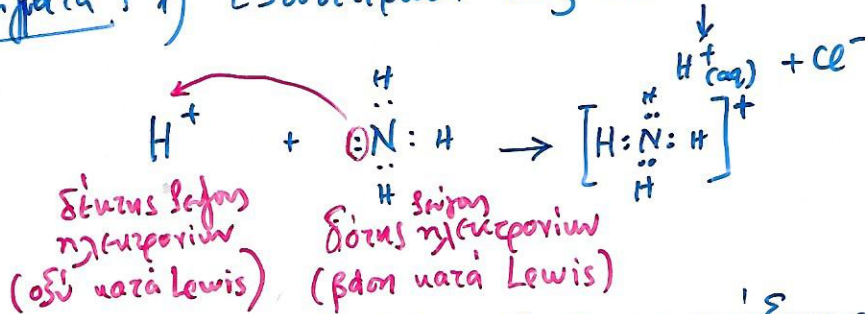 ↓
H⁺(aq) + Cl⁻
H⁺ + :N:H → [H:N:H]⁺
H H
H H
δέκτης ζεύγους ηλεκτρονίων (οξύ κατά Lewis)
δότης ζεύγους ηλεκτρονίων (βάση κατά Lewis)